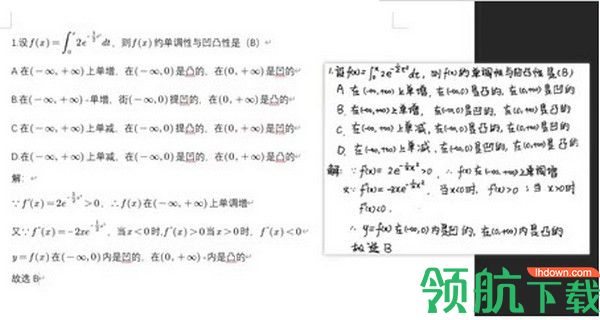 1.设f(x)=∫₀ˣ2e^{-½t²}dt，则f(x)约单调性与凹凸性是（B）
A在(−∞,+∞)上单增，在(−∞,0)是凸的，在(0,+∞)是凹的
B在(−∞,+∞)-单增，街(−∞,0)提凹的，在(0,+∞)是凸的
C在(−∞,+∞)上单减，在(−∞,0)提凸的，在(0,+∞)是凹的
D.在(−∞,+∞)上单减，在(−∞,0)是凹的，在(0,+∞)是凸的
解：
∵f'(x)=2e^{-½x²}>0，∴f(x)在(−∞,+∞)上单调增
又∵f''(x)=−2xe^{-½x²}，当x<0时,f''(x)>0当x>0时，f''(x)<0
y=f(x)在(−∞,0)内是凹的，在(0,+∞)-内是凸的
故选B
1.设f(x)=∫₀ˣ2e^{-½t²}dt，则f(x)的单调性与凹凸性是(B)
A. 在(-∞,+∞)上单增，在(-∞,0)是凸的，在(0,+∞)是凹的
B. 在(-∞,+∞)上单增，在(-∞,0)是凹的，在(0,+∞)是凸的
C. 在(-∞,+∞)上单减，在(-∞,0)是凸的，在(0,+∞)是凹的
D. 在(-∞,+∞)上单减，在(-∞,0)是凹的，在(0,+∞)是凸的
解：∵f'(x)=2e^{-½x²}>0，∴f(x)在(-∞,+∞)上单调增
又∵f''(x)=-2xe^{-½x²}，当x<0时，f''(x)>0；当x>0时
f''(x)<0.
∴y=f(x)在(-∞,0)内是凹的，在(0,+∞)内是凸的
故选B
领航下载
lhdown.com